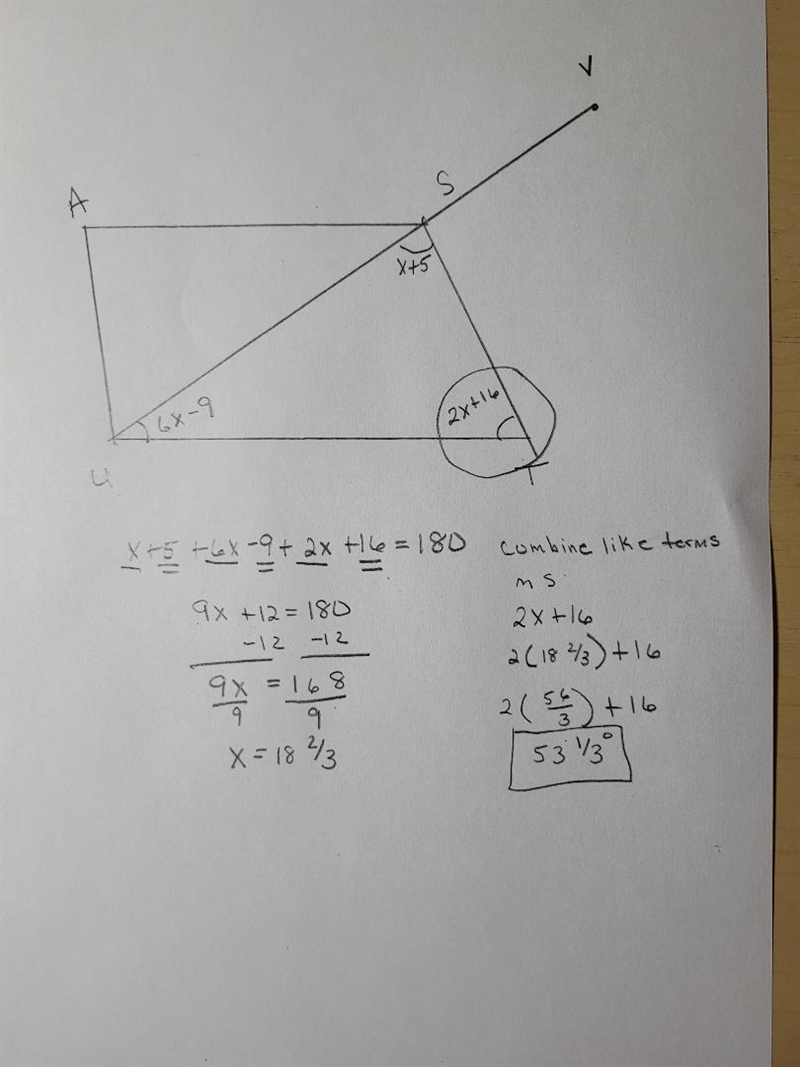 V
A
S
x+5
6x-9
2x+16
U
T
x+5 +6x -9 + 2x +16 = 180
combine like terms
9x +12 = 180
-12 -12
9x/9 = 168/9
x = 18 2/3
m S
2x+16
2(18 2/3)+16
2(56/3)+16
53 1/3°